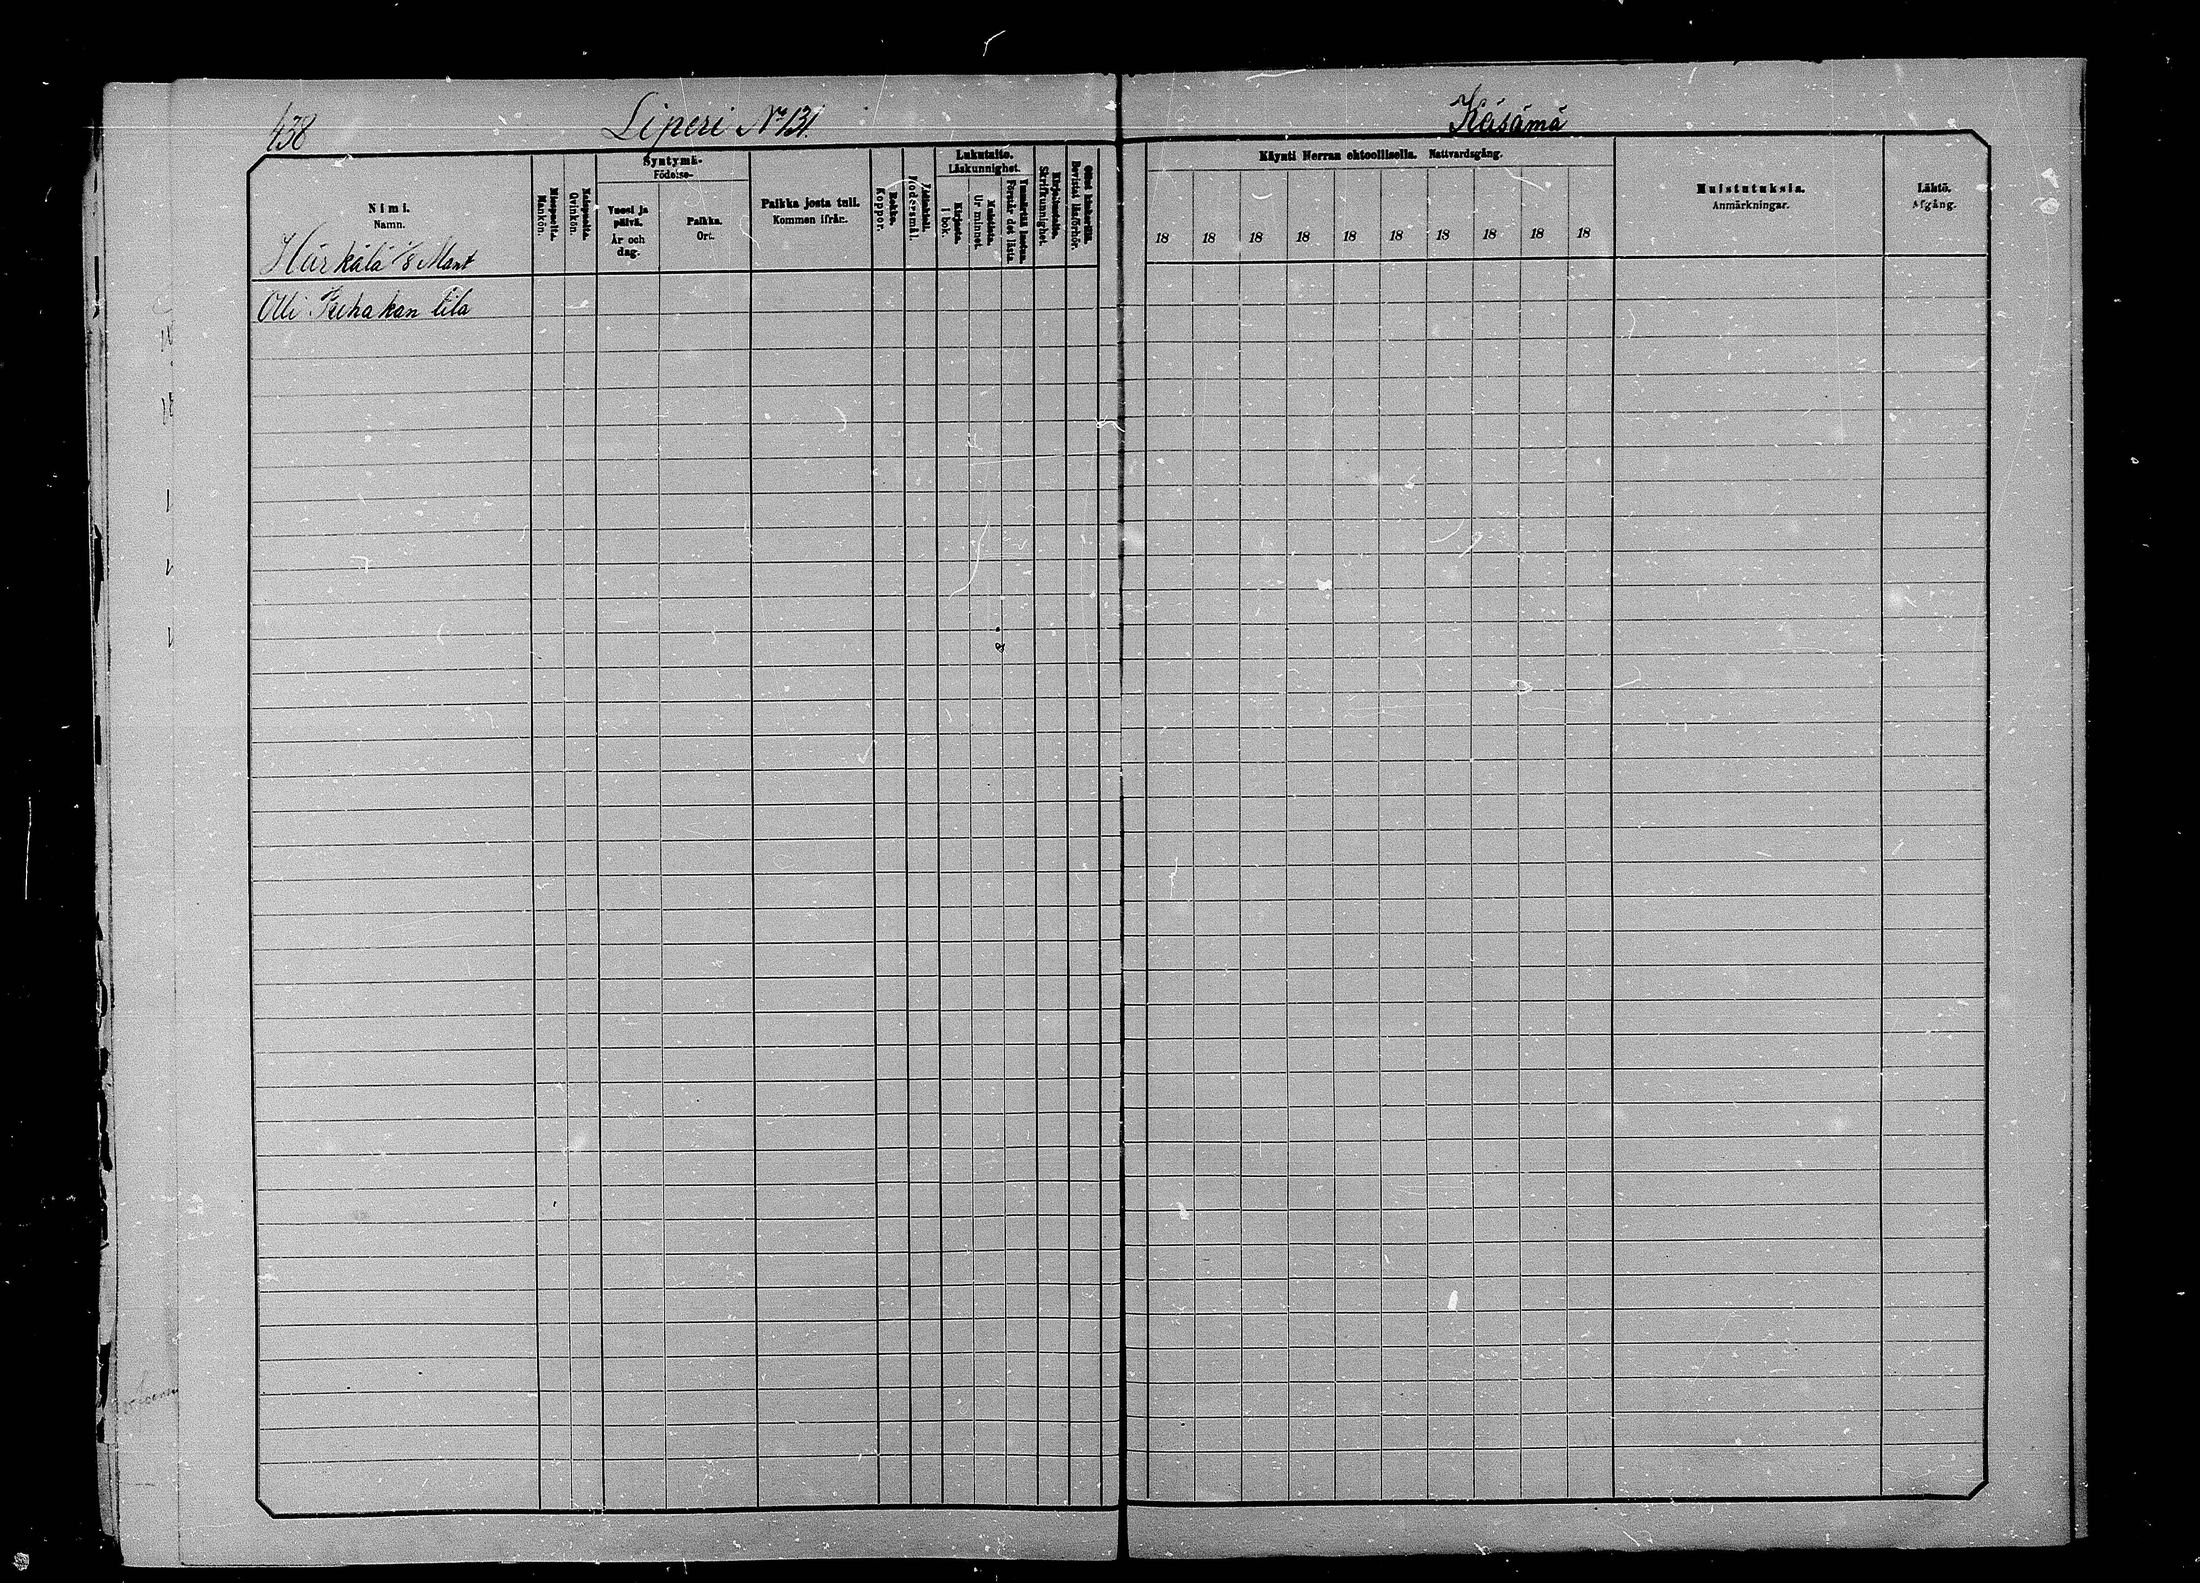 438
Liperi No 131.
Käsämä
Nimi.
Namn.
Miespuolta.
Mankön.
Naispuolta.
Qvinkön.
Syntymä-
Födelse-
Vuosi ja päivä.
År och dag.
Paikka.
Ort.
Paikka josta tuli.
Kommen ifrån.
Rokko.
Koppor.
Äidinkieli.
Modersmål.
Lukutaito.
Läskunnighet.
Kirjasta.
I bok.
Muistista.
Ur minnet.
Ymmärtää luetun.
Förstår det lästa.
Kirjoitustaito.
Skrifkunnighet.
Ollut lukusilla.
Bevistat läsförhör.
Käynti Herran ehtoollisella. Nattvardsgång.
18 18 18 18 18 18 18 18 18 18
Muistutuksia.
Anmärkningar.
Lähtö.
Afgång.
Härkälä 1/8 Mant
Olli tila